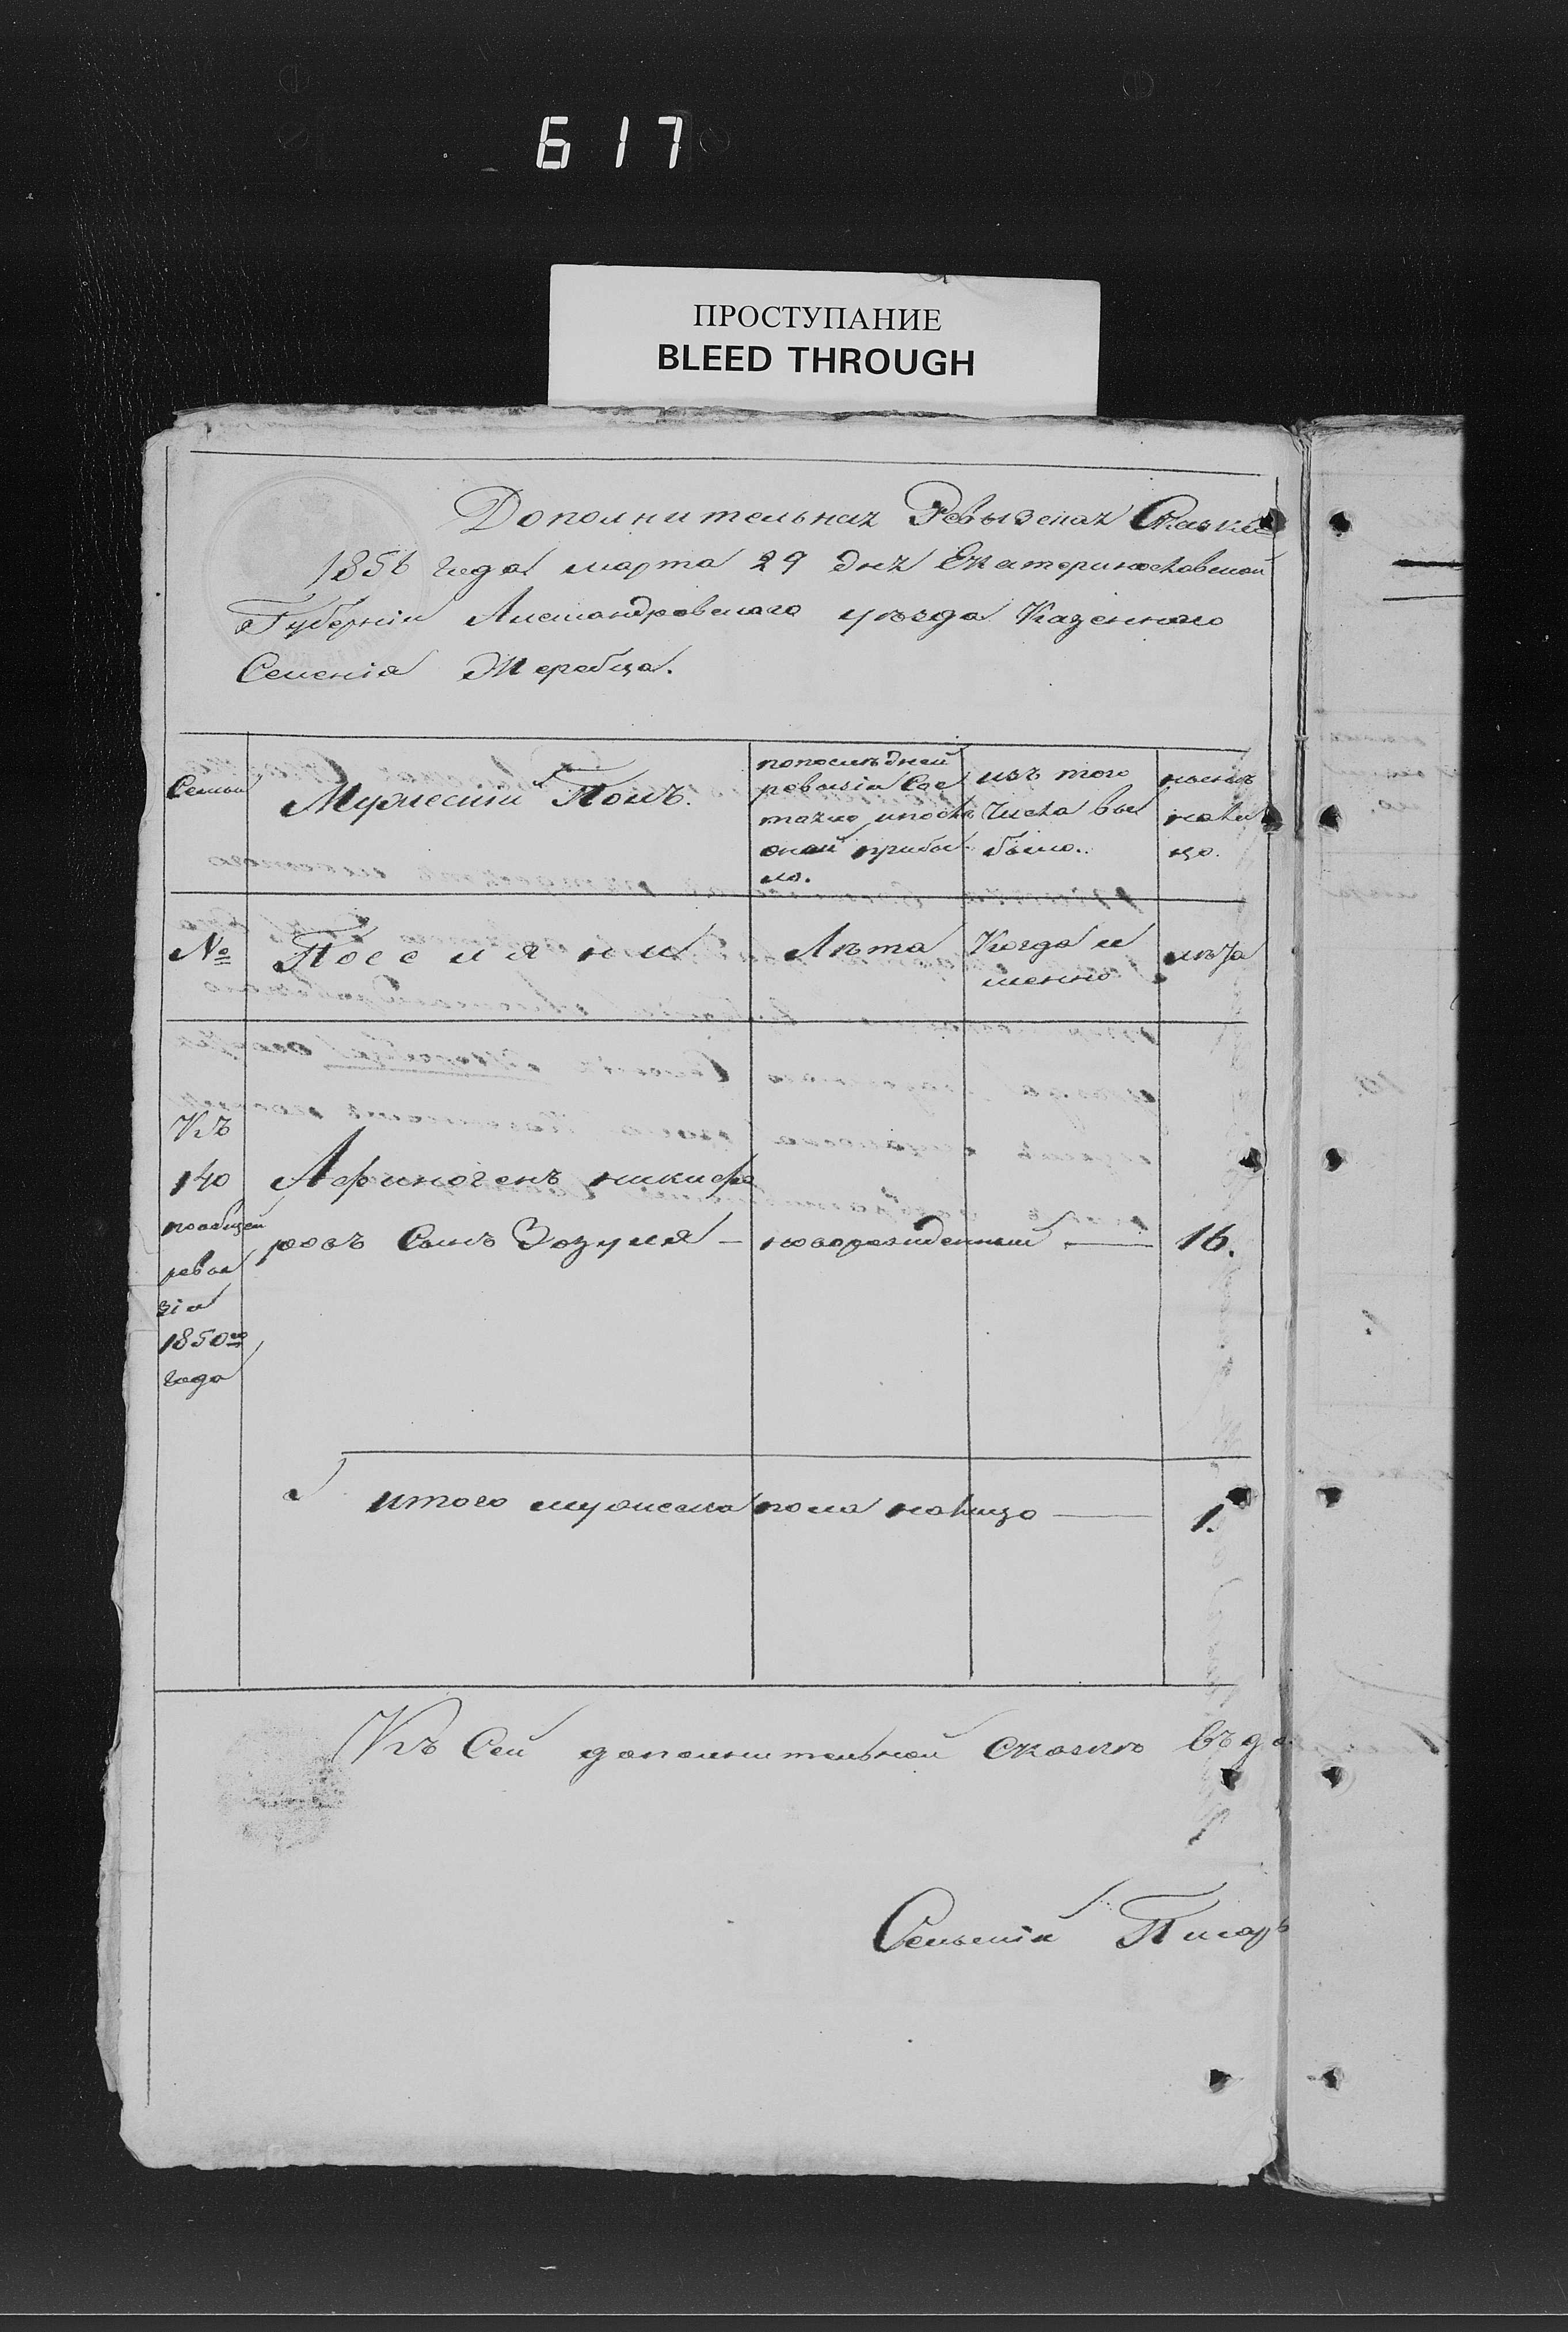 617
ПРОСТУПАНИЕ
BLEED THROUGH
Дополнительная Ревызская Сказка
1856 года марта 29 дня Екатеринославской
Губерніи Александровскаго уѣзда Казенного
Селенія Жеребца.
Семьи
Мужескій Полъ.
попослѣдней
ревызіи Сос
тояло ипослѣ
оной прибы
ло.
изъ того
Числа вы
было.
нынѣ
нали
цо.
№
Поселяни
Лѣта
Когда и
менно
лѣта
Къ
140
пообщей
ревы
зіи
1850го
года
Афиногенъ никифо
ровъ Сынъ Зозуля — новорожденный — 16.
итого мужеска пола налицо — 1.
Къ Сей дополнительной Сказкѣ
Сельскій Писарь